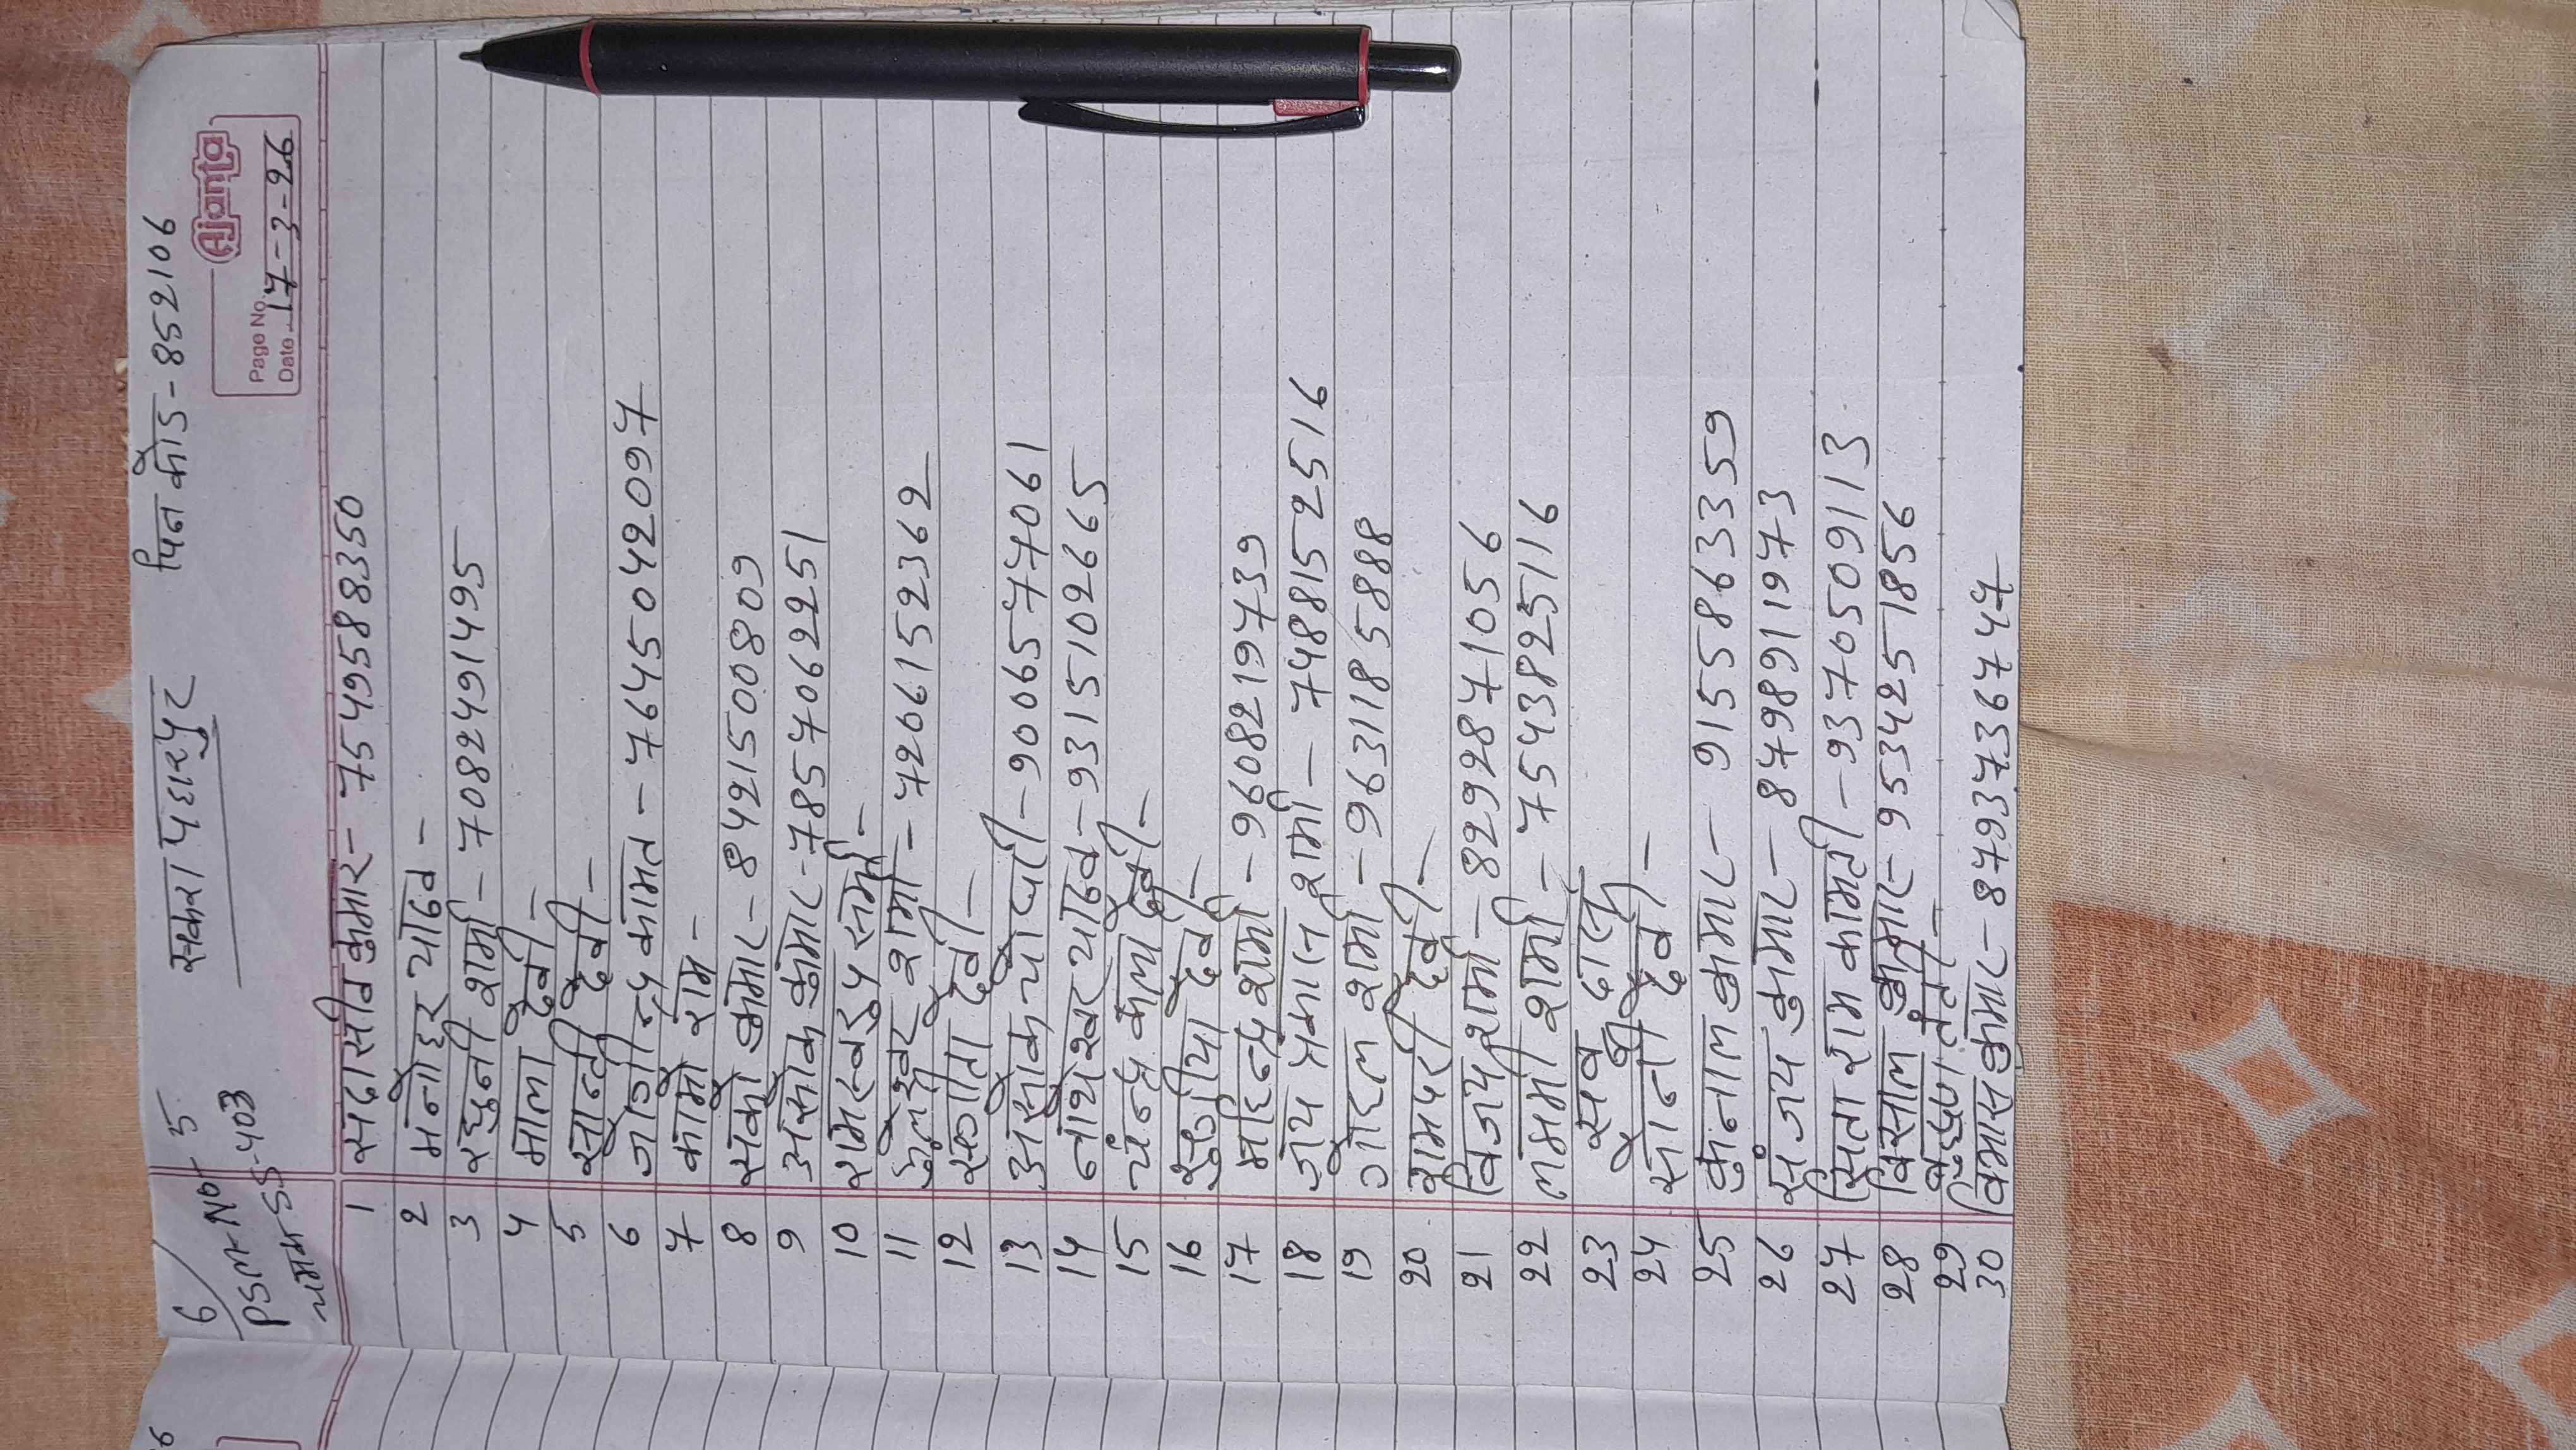 6/5
सकरा पहारपुर
पिन कोड - 852106
PSM No
SS-403
Ajanta
Page No.
Date 17-3-26
1 सदासीव कुमार - 7549588350
2 मनोहर यादव -
3 रघुनी शर्मा - 7082491495
4 माला देवी -
5 सान्ती देवी -
6 जोगीन्द्र कामत - 7645042097
7 कामो राम -
8 सको कुमार - 8421500809
9 असोक कुमार - 7857062251
10 रामस्वरुप सर्मा -
11 फुलेश्वर शर्मा - 7206152362
12 संगीता देवी -
13 असोक चौधरी - 9006577061
14 नागेश्वर यादव - 9315102665
15 चन्द्र कला देवी -
16 सुगीया देवी -
17 महिन्द्र शर्मा - 9608219739
18 जय प्रकाश शर्मा - 7488152516
19 गोहल शर्मा - 9631185888
20 शामपरी देवी -
21 विजय शर्मा - 8292871056
22 लक्ष्मी शर्मा - 7543825116
23 सेवी दास
24 सोनी देवी -
25 कुनाल कुमार - 9155863359
26 संजय कुमार - 8798911973
27 सिता राम कामती - 9370509113
28 विसाल कुमार - 9534251856
29
30 विकास कुमार - 8793736747